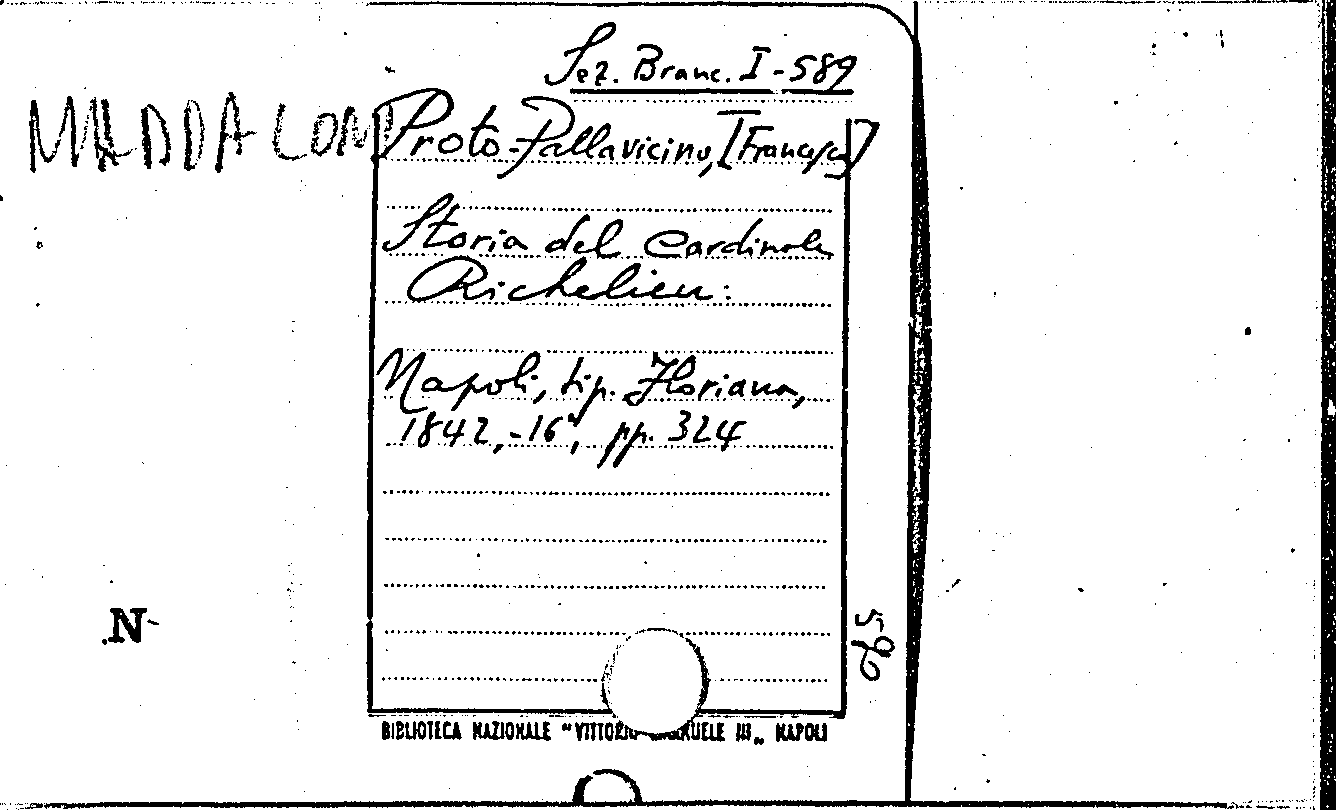 Sez. Branc. I - 589
MADDALONI
Proto-Pallavicino, [Francesco]
Storia del Cardinale
Richelieu.
Napoli, tip. Floriana,
1842, -16°, pp. 324
N
BIBLIOTECA NAZIONALE "VITTORIO EMANUELE III„ NAPOLI